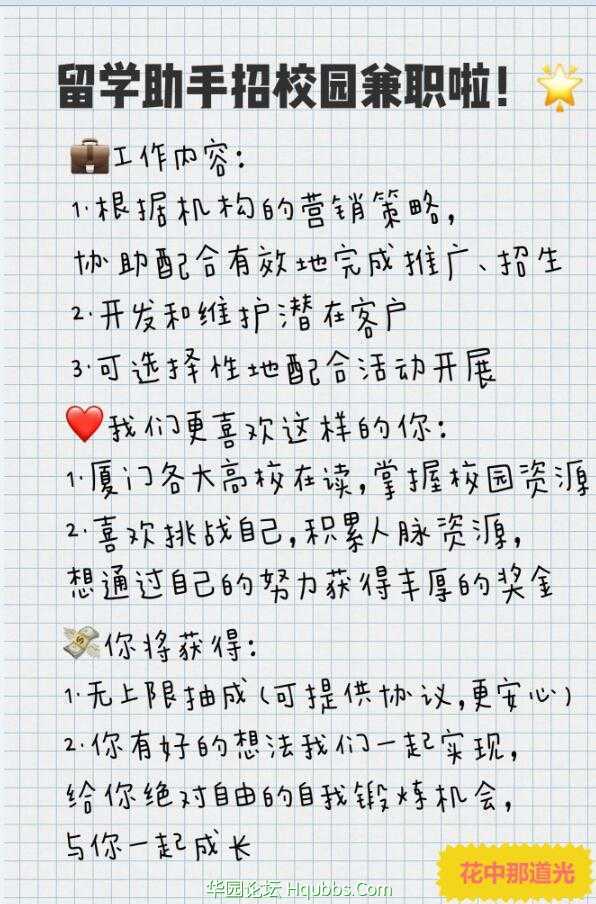 留学助手招校园兼职啦!
工作内容:
1·根据机构的营销策略,
协助配合有效地完成推广、招生
2·开发和维护潜在客户
3·可选择性地配合活动开展
我们更喜欢这样的你:
1·厦门各大高校在读,掌握校园资源
2·喜欢挑战自己,积累人脉资源,
想通过自己的努力获得丰厚的奖金
你将获得:
1·无上限抽成(可提供协议,更安心)
2·你有好的想法我们一起实现,
给你绝对自由的自我锻炼机会,
与你一起成长
花中那道光
华园论坛 Hqubbs.Com